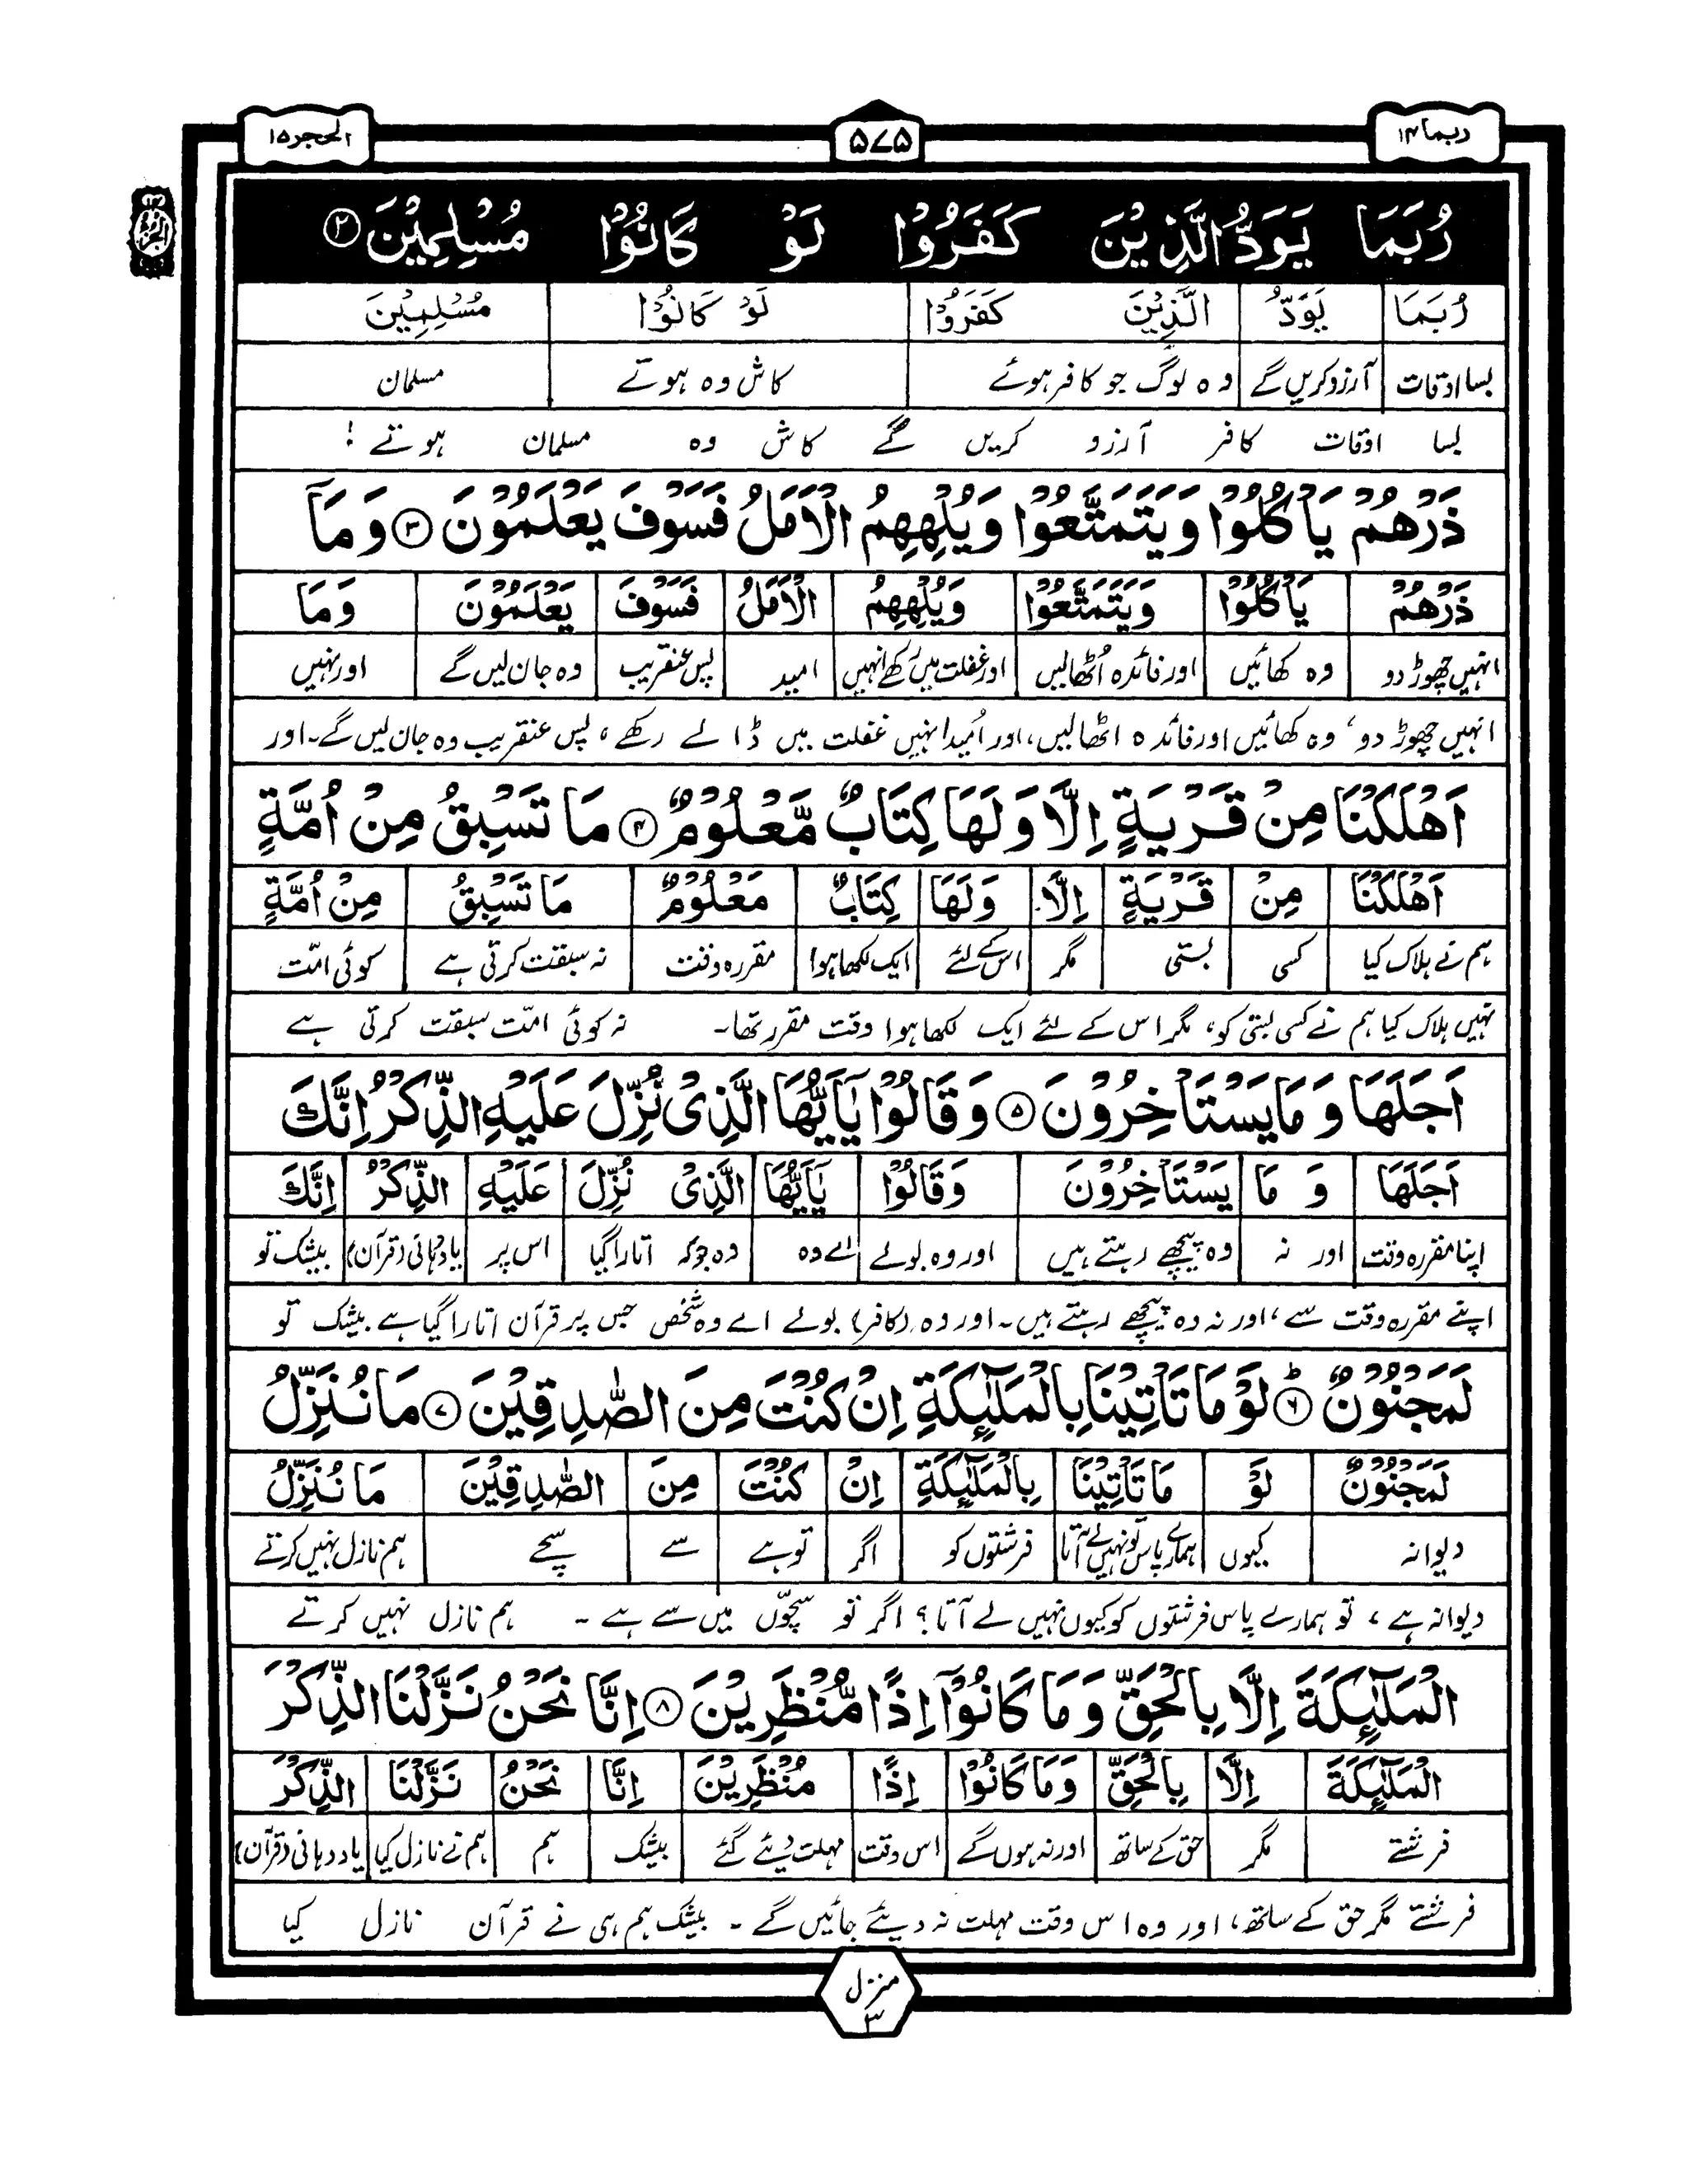 ربما ۱۴
۵۷۵
الحجر ۱۵
رُبَمَا يَوَدُّ الَّذِيْنَ كَفَرُوْا لَوْ كَانُوْا مُسْلِمِيْنَ ۝۲
رُبَمَا يَوَدُّ الَّذِيْنَ كَفَرُوْا لَوْ كَانُوْا مُسْلِمِيْنَ
بسا اوقات آرزو کریں گے وہ لوگ جو کافر ہوئے کاش وہ ہوتے مسلمان
بسا اوقات کافر آرزو کریں گے کاش وہ مسلمان ہوتے !
ذَرْهُمْ يَاْكُلُوْا وَيَتَمَتَّعُوْا وَيُلْهِهِمُ الْاَمَلُ فَسَوْفَ يَعْلَمُوْنَ ۝۳ وَمَآ
ذَرْهُمْ يَاْكُلُوْا وَيَتَمَتَّعُوْا وَيُلْهِهِمُ الْاَمَلُ فَسَوْفَ يَعْلَمُوْنَ وَمَا
انہیں چھوڑ دو وہ کھائیں اور فائدہ اُٹھالیں اور غفلت میں رکھے انہیں امید پس عنقریب وہ جان لیں گے اور نہیں
انہیں چھوڑ دو، وہ کھائیں اور فائدہ اٹھالیں، اور اُمید انہیں غفلت میں ڈالے رکھے، پس عنقریب وہ جان لیں گے۔ اور
اَهْلَكْنَا مِنْ قَرْيَةٍ اِلَّا وَلَهَا كِتَابٌ مَّعْلُوْمٌ ۝۴ مَا تَسْبِقُ مِنْ اُمَّةٍ
اَهْلَكْنَا مِنْ قَرْيَةٍ اِلَّا وَلَهَا كِتَابٌ مَعْلُوْمٌ مَا تَسْبِقُ مِنْ اُمَّةٍ
ہم نے ہلاک کیا کسی بستی مگر اس کے لئے ایک لکھا ہوا مقررہ وقت نہ سبقت کرتی ہے کوئی امت
نہیں ہلاک کیا ہم نے کسی بستی کو، مگر اس کے لئے ایک لکھا ہوا وقت مقرر تھا۔ نہ کوئی امت سبقت کرتی ہے
اَجَلَهَا وَمَا يَسْتَاْخِرُوْنَ ۝۵ وَقَالُوْا يٰٓاَيُّهَا الَّذِىْ نُزِّلَ عَلَيْهِ الذِّكْرُ اِنَّكَ
اَجَلَهَا وَ مَا يَسْتَاْخِرُوْنَ وَقَالُوْا يٰٓاَيُّهَا الَّذِىْ نُزِّلَ عَلَيْهِ الذِّكْرُ اِنَّكَ
اپنا مقررہ وقت اور نہ وہ پیچھے رہتے ہیں اور وہ بولے اے وہ وہ جو کہ اتارا گیا اس پر یاد دہانی (قرآن) بیشک تو
اپنے مقررہ وقت سے، اور نہ وہ پیچھے رہتے ہیں۔ اور وہ (کافر) بولے اے وہ شخص جس پر قرآن اتارا گیا ہے بیشک تو
لَمَجْنُوْنٌ ۝۶ؕ لَوْ مَا تَاْتِيْنَا بِالْمَلٰٓئِكَةِ اِنْ كُنْتَ مِنَ الصّٰدِقِيْنَ ۝۷ مَا نُنَزِّلُ
لَمَجْنُوْنٌ لَوْ مَا تَاْتِيْنَا بِالْمَلٰٓئِكَةِ اِنْ كُنْتَ مِنَ الصّٰدِقِيْنَ مَا نُنَزِّلُ
دیوانہ کیوں ہمارے پاس تو نہیں لے آتا فرشتوں کو اگر تو ہے سے سچے ہم نازل نہیں کرتے
دیوانہ ہے، تو ہمارے پاس فرشتوں کو کیوں نہیں لے آتا؟ اگر تو سچوں میں سے ہے۔ ہم نازل نہیں کرتے
الْمَلٰٓئِكَةَ اِلَّا بِالْحَقِّ وَمَا كَانُوْٓا اِذًا مُّنْظَرِيْنَ ۝۸ اِنَّا نَحْنُ نَزَّلْنَا الذِّكْرَ
الْمَلٰٓئِكَةَ اِلَّا بِالْحَقِّ وَمَا كَانُوْٓا اِذًا مُنْظَرِيْنَ اِنَّا نَحْنُ نَزَّلْنَا الذِّكْرَ
فرشتے مگر حق کے ساتھ اور نہ ہوں گے اس وقت مہلت دیئے گئے بیشک ہم ہم نے نازل کیا یاد دہانی (قرآن)
فرشتے مگر حق کے ساتھ، اور وہ اس وقت مہلت نہ دیئے جائیں گے۔ بیشک ہم ہی نے قرآن نازل کیا
منزل ۳